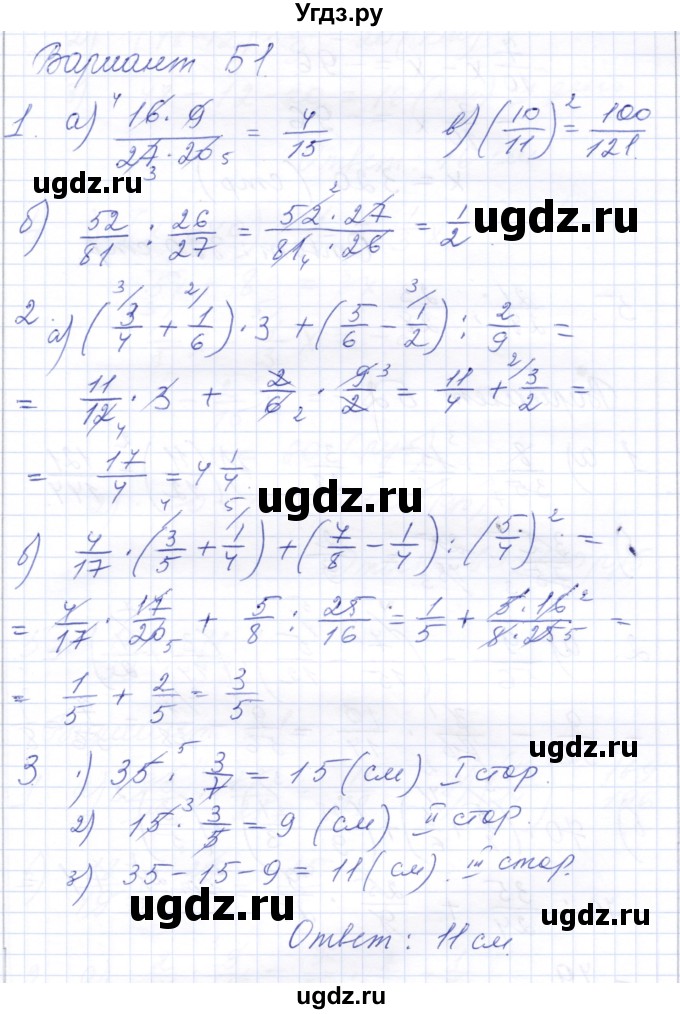 Угдз.ру
Вариант Б1
1. а) (16·9)/(27·20) = 4/15  в) (10/11)² = 100/121.
ugdz.ru ugdz.ru
б) 52/81 : 26/27 = (52·27)/(81·26) = 1/2.
2 а) (3/4 + 1/6)·3 + (5/6 − 1/2) : 2/9 =
= 11/12 · 3 + 2/6 · 9/2 = 11/4 + 3/2 =
= 17/4 = 4 1/4.
ugdz.ru
б) 4/17 · (3/5 + 1/4) + (7/8 − 1/4) : (5/4)² =
= 4/17 · 17/20 + 5/8 : 25/16 = 1/5 + (5·16)/(8·25) =
= 1/5 + 2/5 = 3/5
ugdz.ru
3 1) 35 · 3/7 = 15 (см) I стор.
2) 15 · 3/5 = 9 (см) II стор.
3) 35 − 15 − 9 = 11 (см). III стор.
ugdz.ru ugdz.ru
Ответ: 11 см.
ugdz.ru